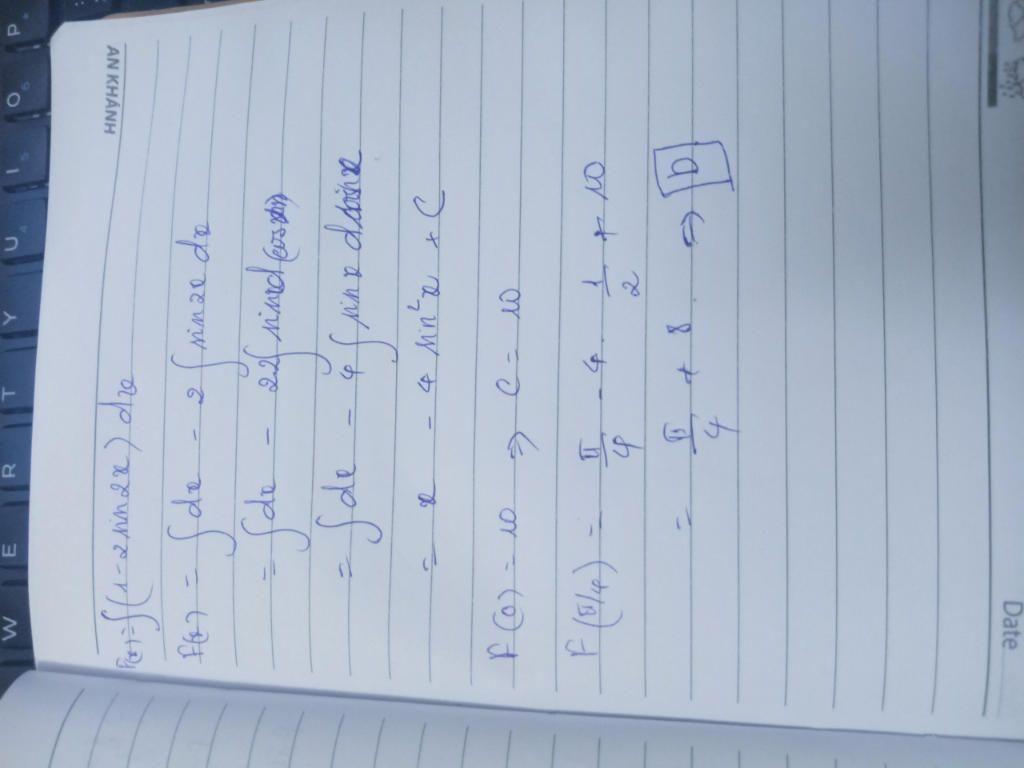 AN KHÁNH
F(x) = ∫(1 - 2 sin2x) dx
F(x) = ∫dx - 2∫sin2x dx
= ∫dx - 22∫sinxd
= ∫dx - 4∫sinx dsinx
= x - 4 sin²x + C
F(0) = 10 ⇒ C = 10
F(π/4) = π/4 - 4 . 1/2 + 10
= π/4 + 8 ⇒ D
Date
W E R T Y U I O P